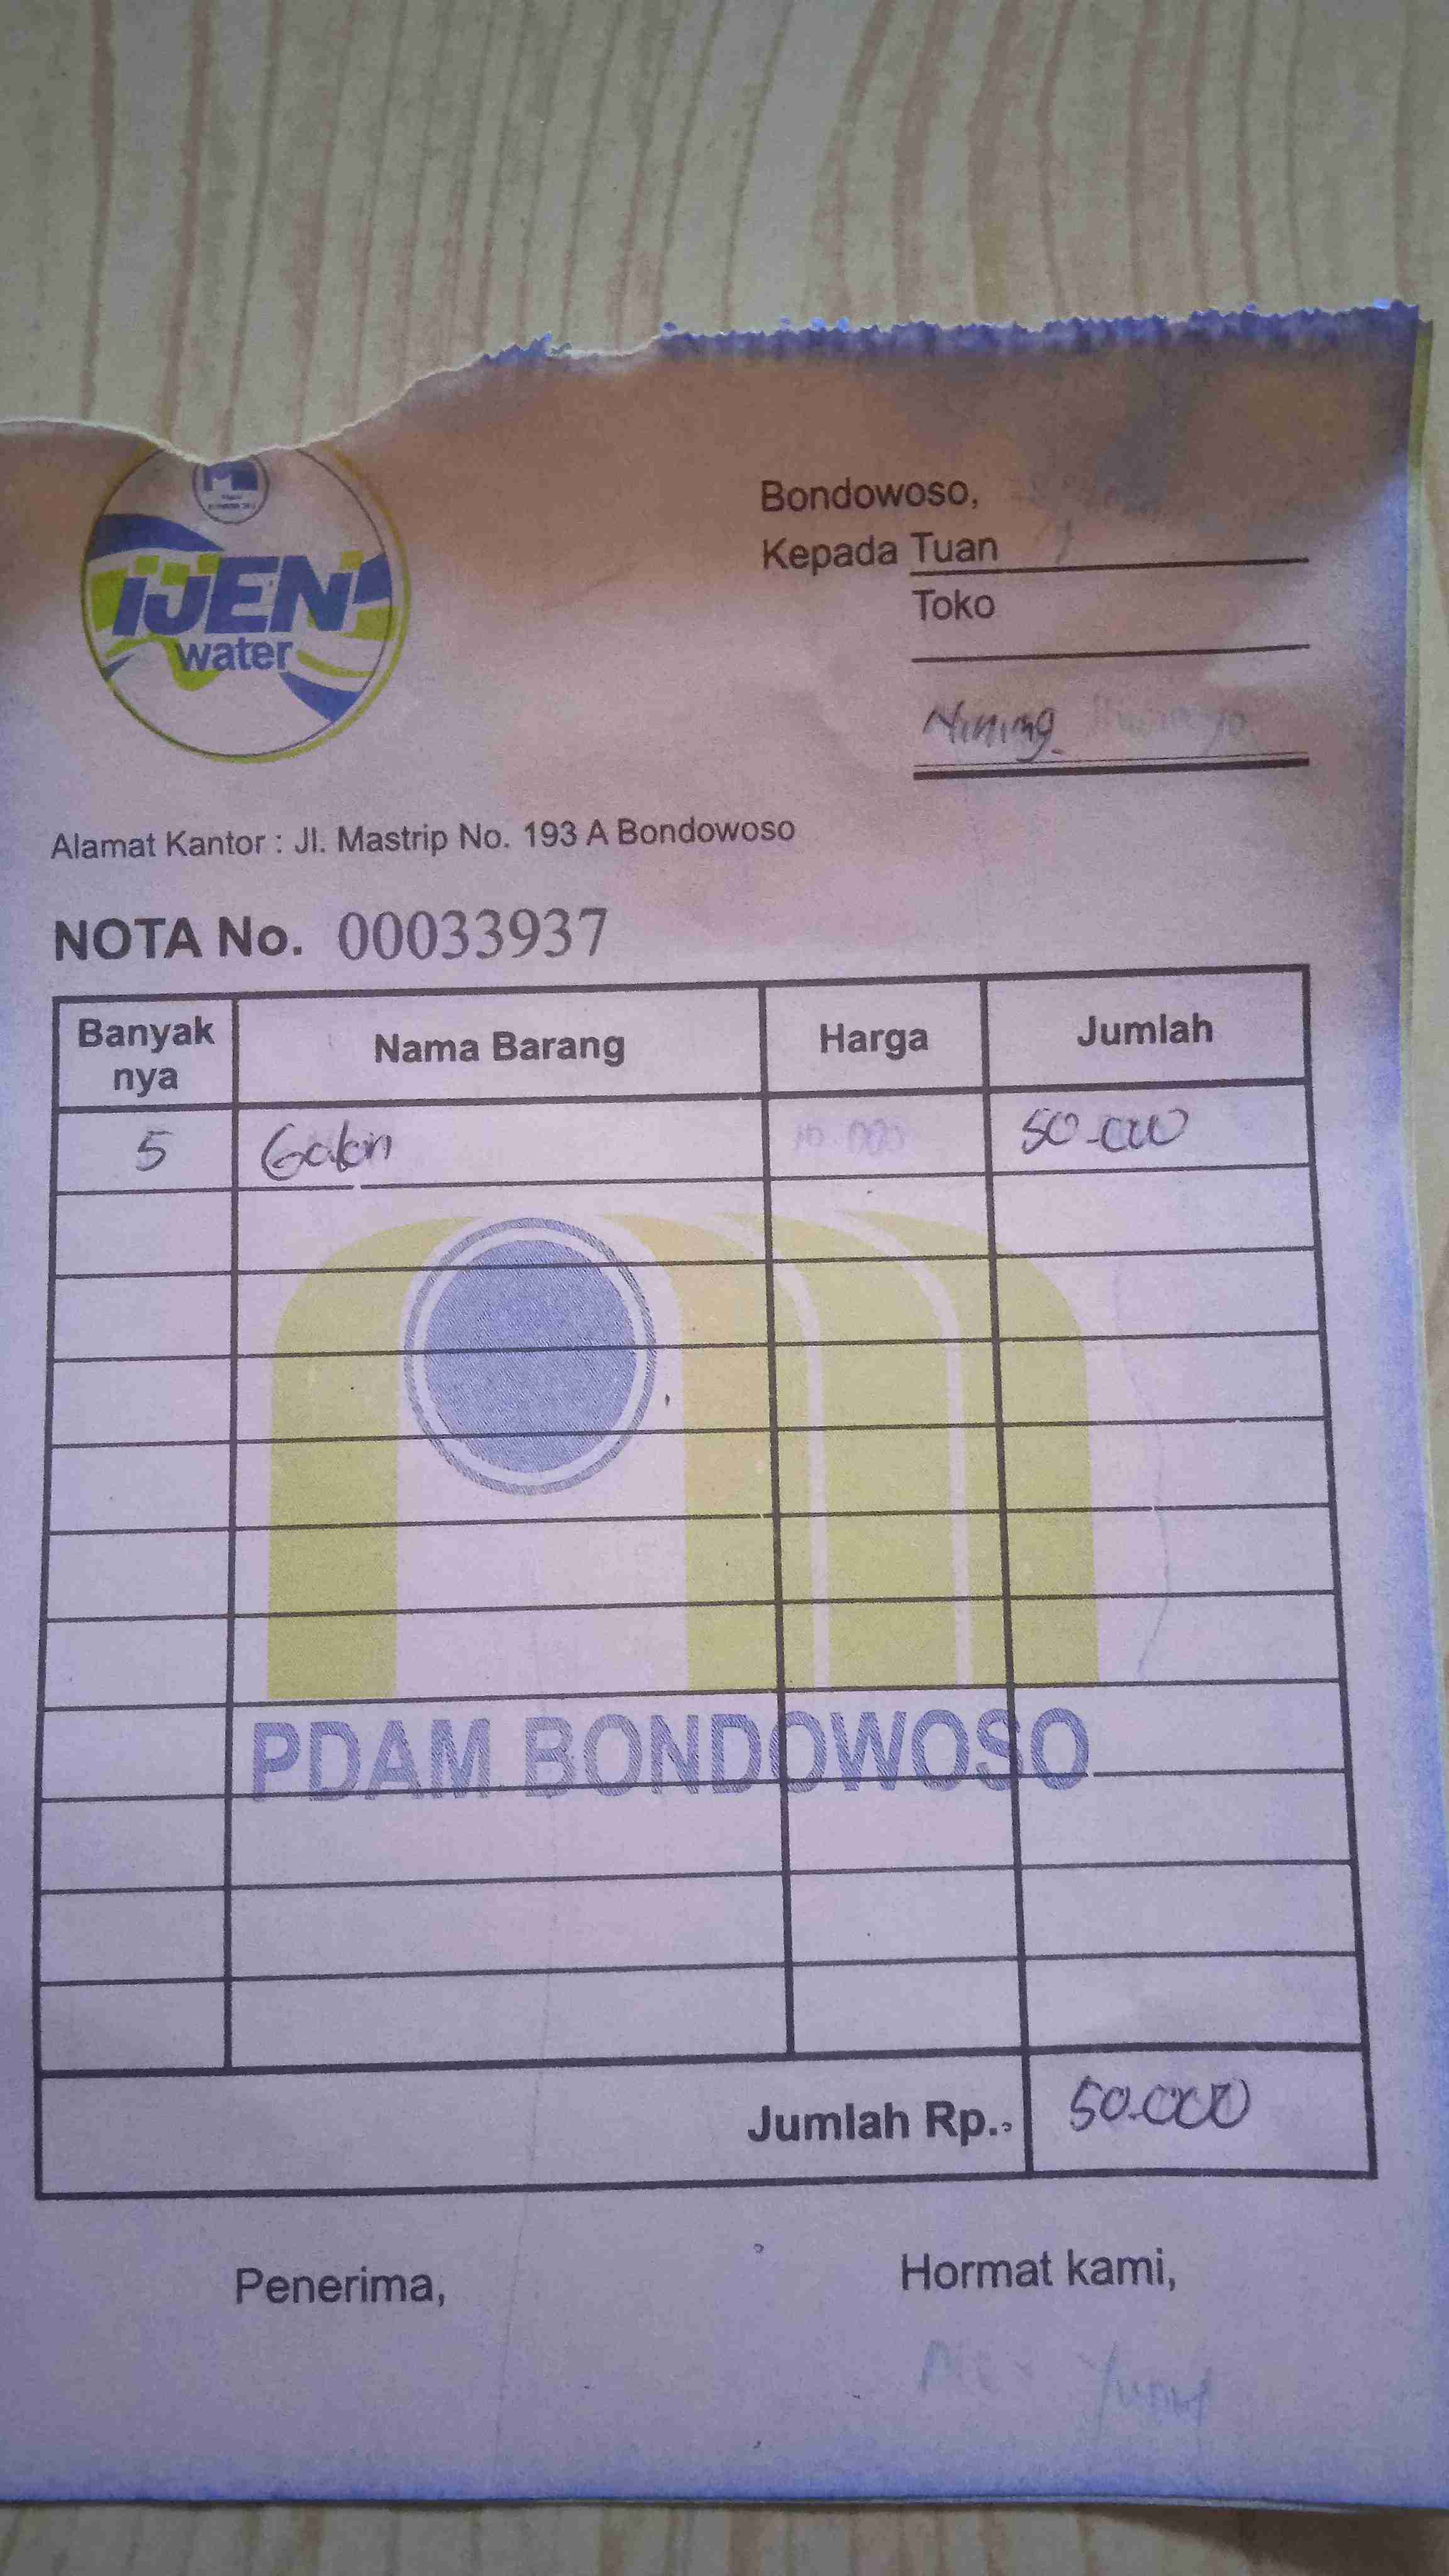 IJEN
water
Bondowoso,
Kepada Tuan
Toko
Nining
Alamat Kantor : Jl. Mastrip No. 193 A Bondowoso
NOTA No. 00033937
Banyak nya Nama Barang Harga Jumlah
5 Galon 10.000 50.000
PDAM BONDOWOSO
Jumlah Rp. 50.000
Penerima, Hormat kami,